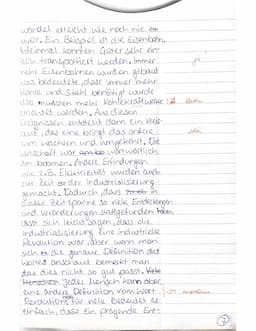 wandel erreicht wie noch nie
zuvor. Ein Beispiel ist die Eisenbahn.
Auf einmal konnten Güter sehr ein-
fach transportiert werden. Immer
mehr Eisenbahnen wurden gebaut
was bedeutete, dass immer mehr
Kohle und Stahl benötigt wurde
also mussten mehr Kohlekraftwerke
errichtet werden. Aus diesen
Ereignissen entsteht dann ein Kreis-
lauf, das eine bringt das andere
zum wachsen und umgekehrt. Die
Wirtschaft war wortwörtlich
am boomen. Andere Erfindungen
wie z.B. Elektrizität wurden auch
zur Zeit der Industrialisierung
gemacht. Dadurch, dass
dieser Zeitspanne so viele Entdeckungen
und Veränderungen stattgefunden haben
lässt sich leicht sagen, dass die
Industrialisierung eine industrielle
Revolution war aber wenn man
sich die genaue Definition des
Wortes anschaut bemerkt man
das dies nicht so gut passt.
Jeder Mensch kann aber
eine andere Definition vom Wort
Revolution, für viele bedeutet es
einfach, dass ein prägende Ent-
7